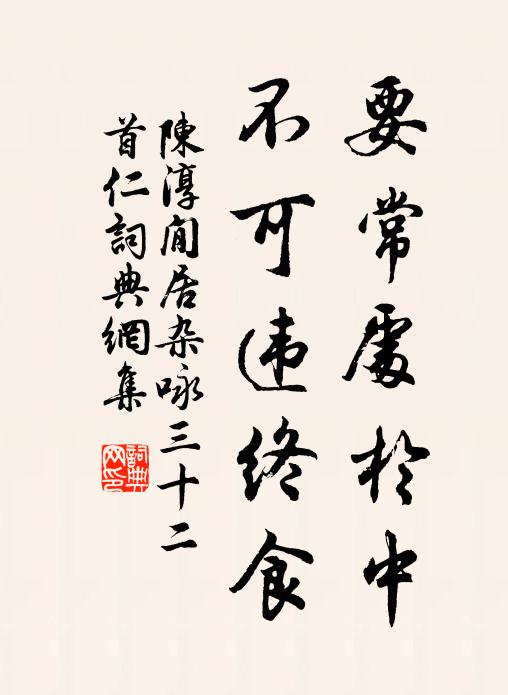 要常處於中
不可违終食
陳淳閒居杂咏三十二
首仁詞典網集
詞典网印